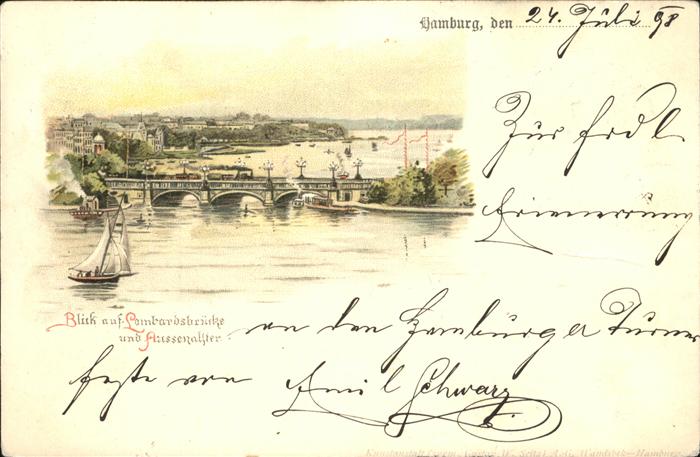 Hamburg, den 24. Juli 98
Zur frdl.
Erinnerung
Blick auf Lombardsbrücke
und Aussenalster.
an den Hamburger Turner
feste von Emil Schwarz
Kunstanstalt W. Seitz A.G. Wandsbek-Hamburg